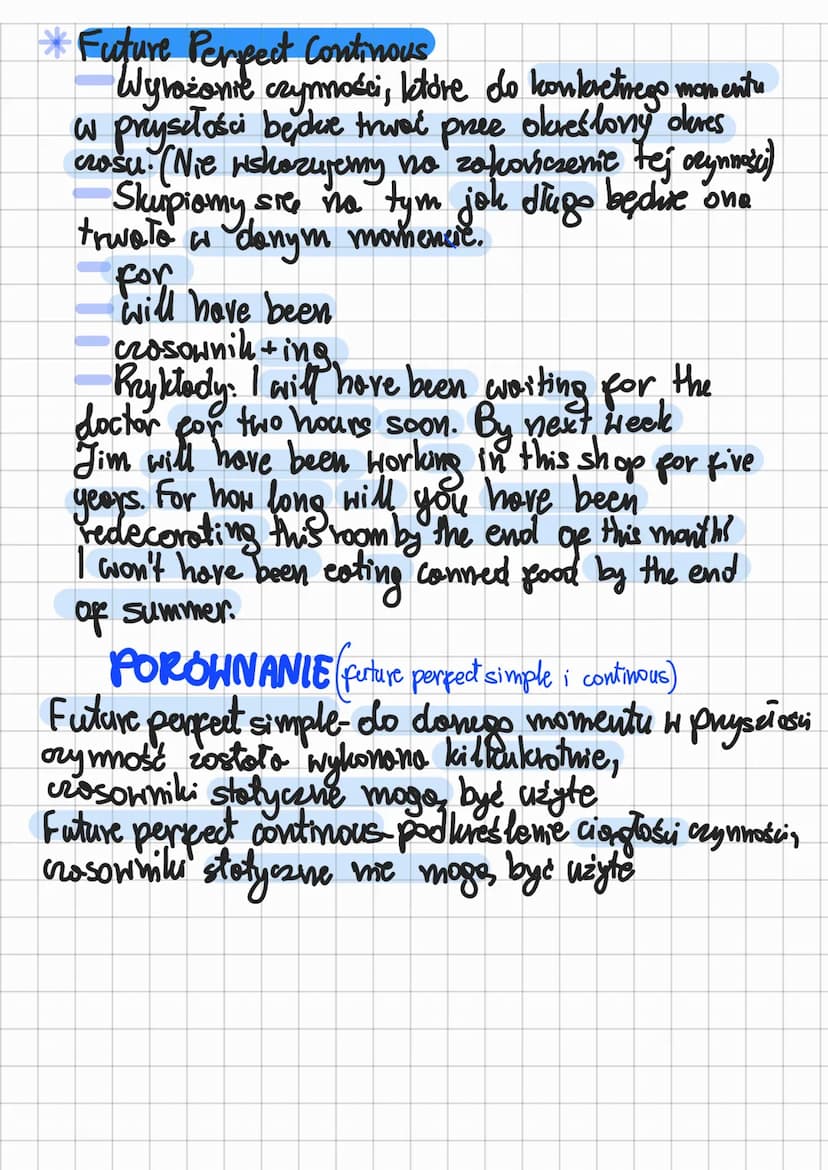 * Future Perfect Continous
- Wyrażanie czynności, które do konkretnego momentu
w przyszłości będzie trwać przez określony okres
czasu. (Nie wskazujemy na zakończenie tej czynności)
- Skupiamy się na tym jak długo będzie ona
trwała w danym momencie.
- for
- will have been
- czasownik + ing
- Przykłady: I will have been waiting for the
doctor for two hours soon. By next week
Jim will have been working in this shop for five
years. For how long will you have been
redecorating this room by the end of this month?
I won't have been eating canned food by the end
of summer.
PORÓWNANIE (future perfect simple i continous)
Future perfect simple - do danego momentu w przyszłości
czynność została wykonana kilkukrotnie,
czasowniki statyczne mogą być użyte
Future perfect continous - podkreślenie ciągłości czynności,
czasowniki statyczne nie mogą być użyte